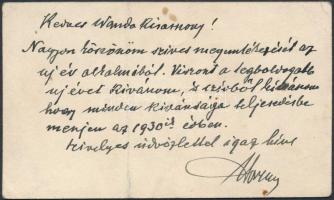 Kedves Wanda Kisasszony!
Nagyon köszönöm szives megemlékezését az
uj év alkalmából. Viszont a legboldogabb
uj évet kivánom, s szivből kivánom
hogy minden kivánsága teljesedésbe
menjen az 1930ik évben.
Szivélyes üdvözlettel igaz hive